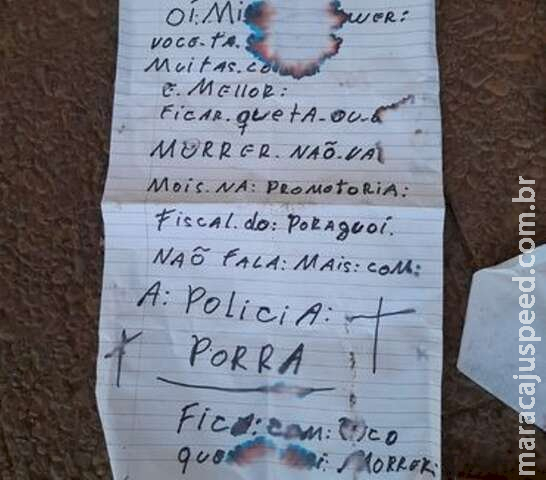 OÍ: MI
VOCE-TA.
MUITAS. CO
E. MELLOR:
FICAR. QUETA-OU-
MORRER. NAÕ-VA
MOIS. NA: PROMOTORIA:
FISCAL. DO: PORAGUOI.
NAÕ FALA: MAIS: COM:
A: POLICIA:
PORRA
FICA: COM: OCO
QUO MORRER:
maracajuspeed.com.br